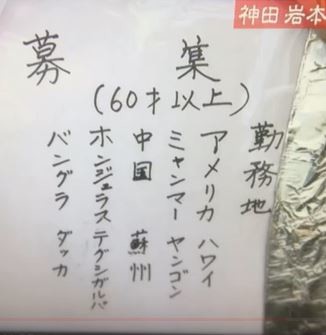 神田 岩本
募集
(60才以上)
勤務地
アメリカ ハワイ
ミャンマー ヤンゴン
中国 蘇州
ホンジュラス テグシガルパ
バングラ ダッカ